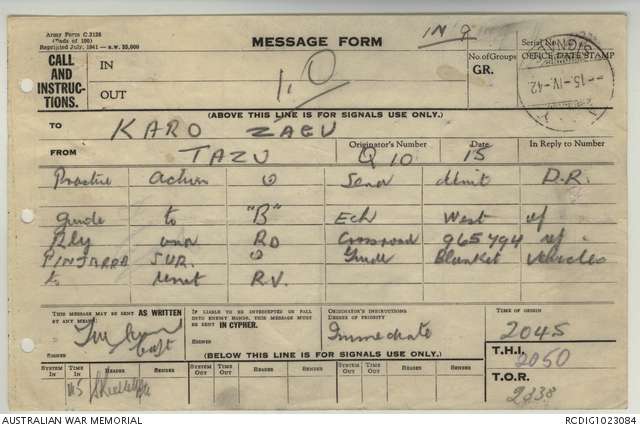 Army Form C.2128
(Pads of 100)
Reprinted July, 1941
MESSAGE FORM
IN 9
Serial No.
CALL
AND
INSTRUC-
TIONS.
IN
OUT
1.0
No. of Groups
GR.
OFFICE DATE STAMP
SIGNALS
15. IV. 42
(ABOVE THIS LINE IS FOR SIGNALS USE ONLY.)
TO KARO ZAEU
FROM TAZU
Originator's Number Q 10
Date 15
In Reply to Number
Practice action ⊙ Send Unit D.R.
guide to "B" Ech West of
Rly and RD Crossroad 965494 ref
PINJARRA SUR. ⊙ Guide Blanket Vehicles
to Unit R.V.
THIS MESSAGE MAY BE SENT AS WRITTEN
BY ANY MEANS.
Capt
SIGNED
IF LIABLE TO BE INTERCEPTED OR FALL
INTO ENEMY HANDS, THIS MESSAGE MUST
BE SENT IN CIPHER.
SIGNED
ORIGINATOR'S INSTRUCTIONS
DEGREE OF PRIORITY
Immediate
TIME OF ORIGIN
2045
T.H.I.
2050
T.O.R.
2238
(BELOW THIS LINE IS FOR SIGNALS USE ONLY.)
SYSTEM IN TIME IN READER SENDER SYSTEM OUT TIME OUT READER SENDER SYSTEM OUT TIME OUT READER SENDER
AUSTRALIAN WAR MEMORIAL
RCDIG1023084